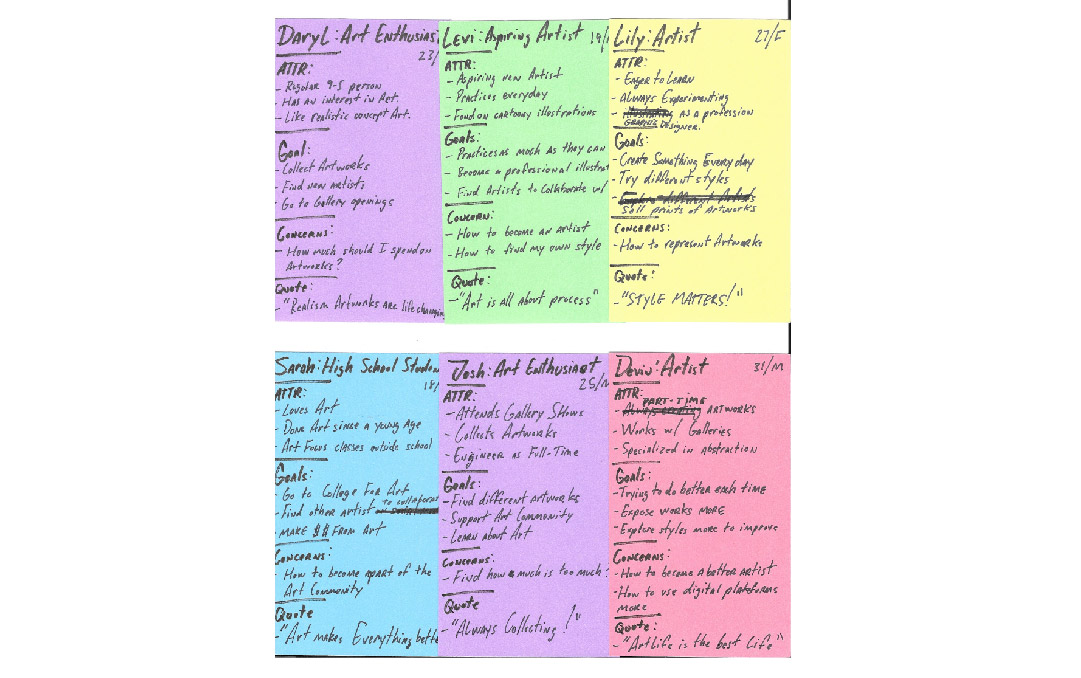 Daryl: Art Enthusias
23/
ATTR:
- Regular 9-5 person
- Has an interest in Art.
- Like realistic concept Art.
Goal:
- Collect Artworks
- Find new artists
- Go to Gallery openings
Concerns:
- How much should I spend on
Artworks?
Quote:
- "Realism Artworks are life changin
Levi: Aspiring Artist
19/
ATTR:
- Aspiring new Artist
- Practices everyday
- Fond on cartoony illustrations
Goals:
- Practices as much as they can
- Become a professional illustrat
- Find Artists to Collaborate w/
Concern:
- How to become an artist
- How to find my own style
Quote:
- "Art is all about process"
Lily: Artist
27/F
ATTR:
- Eager to Learn
- Always Experimenting
- as a profession
Graphic Designer.
Goals:
- Create Something Everyday
- Try different styles
- Explore different Artists
Sell prints of Artworks
Concerns:
- How to represent Artworks
Quote:
- "STYLE MATTERS!"
Sarah: High School Studen
18/
ATTR:
- Loves Art
- Done Art since a young Age
- Art Focus classes outside school
Goals:
- Go to College For Art
- Find other artist to collaborat
- MAKE $$ From Art
Concerns:
- How to become apart of the
Art Community
Quote
- "Art makes Everything bette
Josh: Art Enthusiast
25/M
ATTR:
- Attends Gallery Shows
- Collects Artworks
- Engineer as Full-Time
Goals:
- Find different artworks
- Support Art Community
- Learn about Art
Concerns:
- Find how much is too much?
Quote
- "Always Collecting!"
Devin: Artist
31/M
ATTR:
PART-TIME
- ARTWORKS
- Works w/ Galleries
- Specialized in abstraction
Goals:
- Trying to do better each time
- Expose works MORE
- Explore styles more to improve
Concerns:
- How to become a better artist
- How to use digital plateforms
more
Quote:
- "Artlife is the best life"